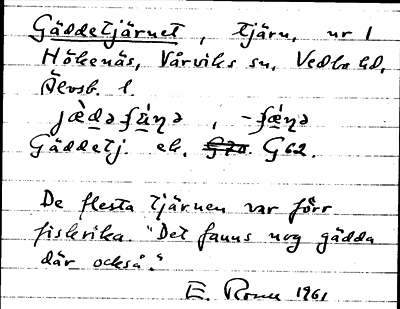 Gäddetjärnet, tjärn, nr 1
Hökenäs, Vårviks sn, Vedbo hd,
Älvsb. l.
Gäddetj. ek. G62.
De flesta tjärnen var förr
fiskrika. "Det fanns nog gädda
där också."
E. 1961